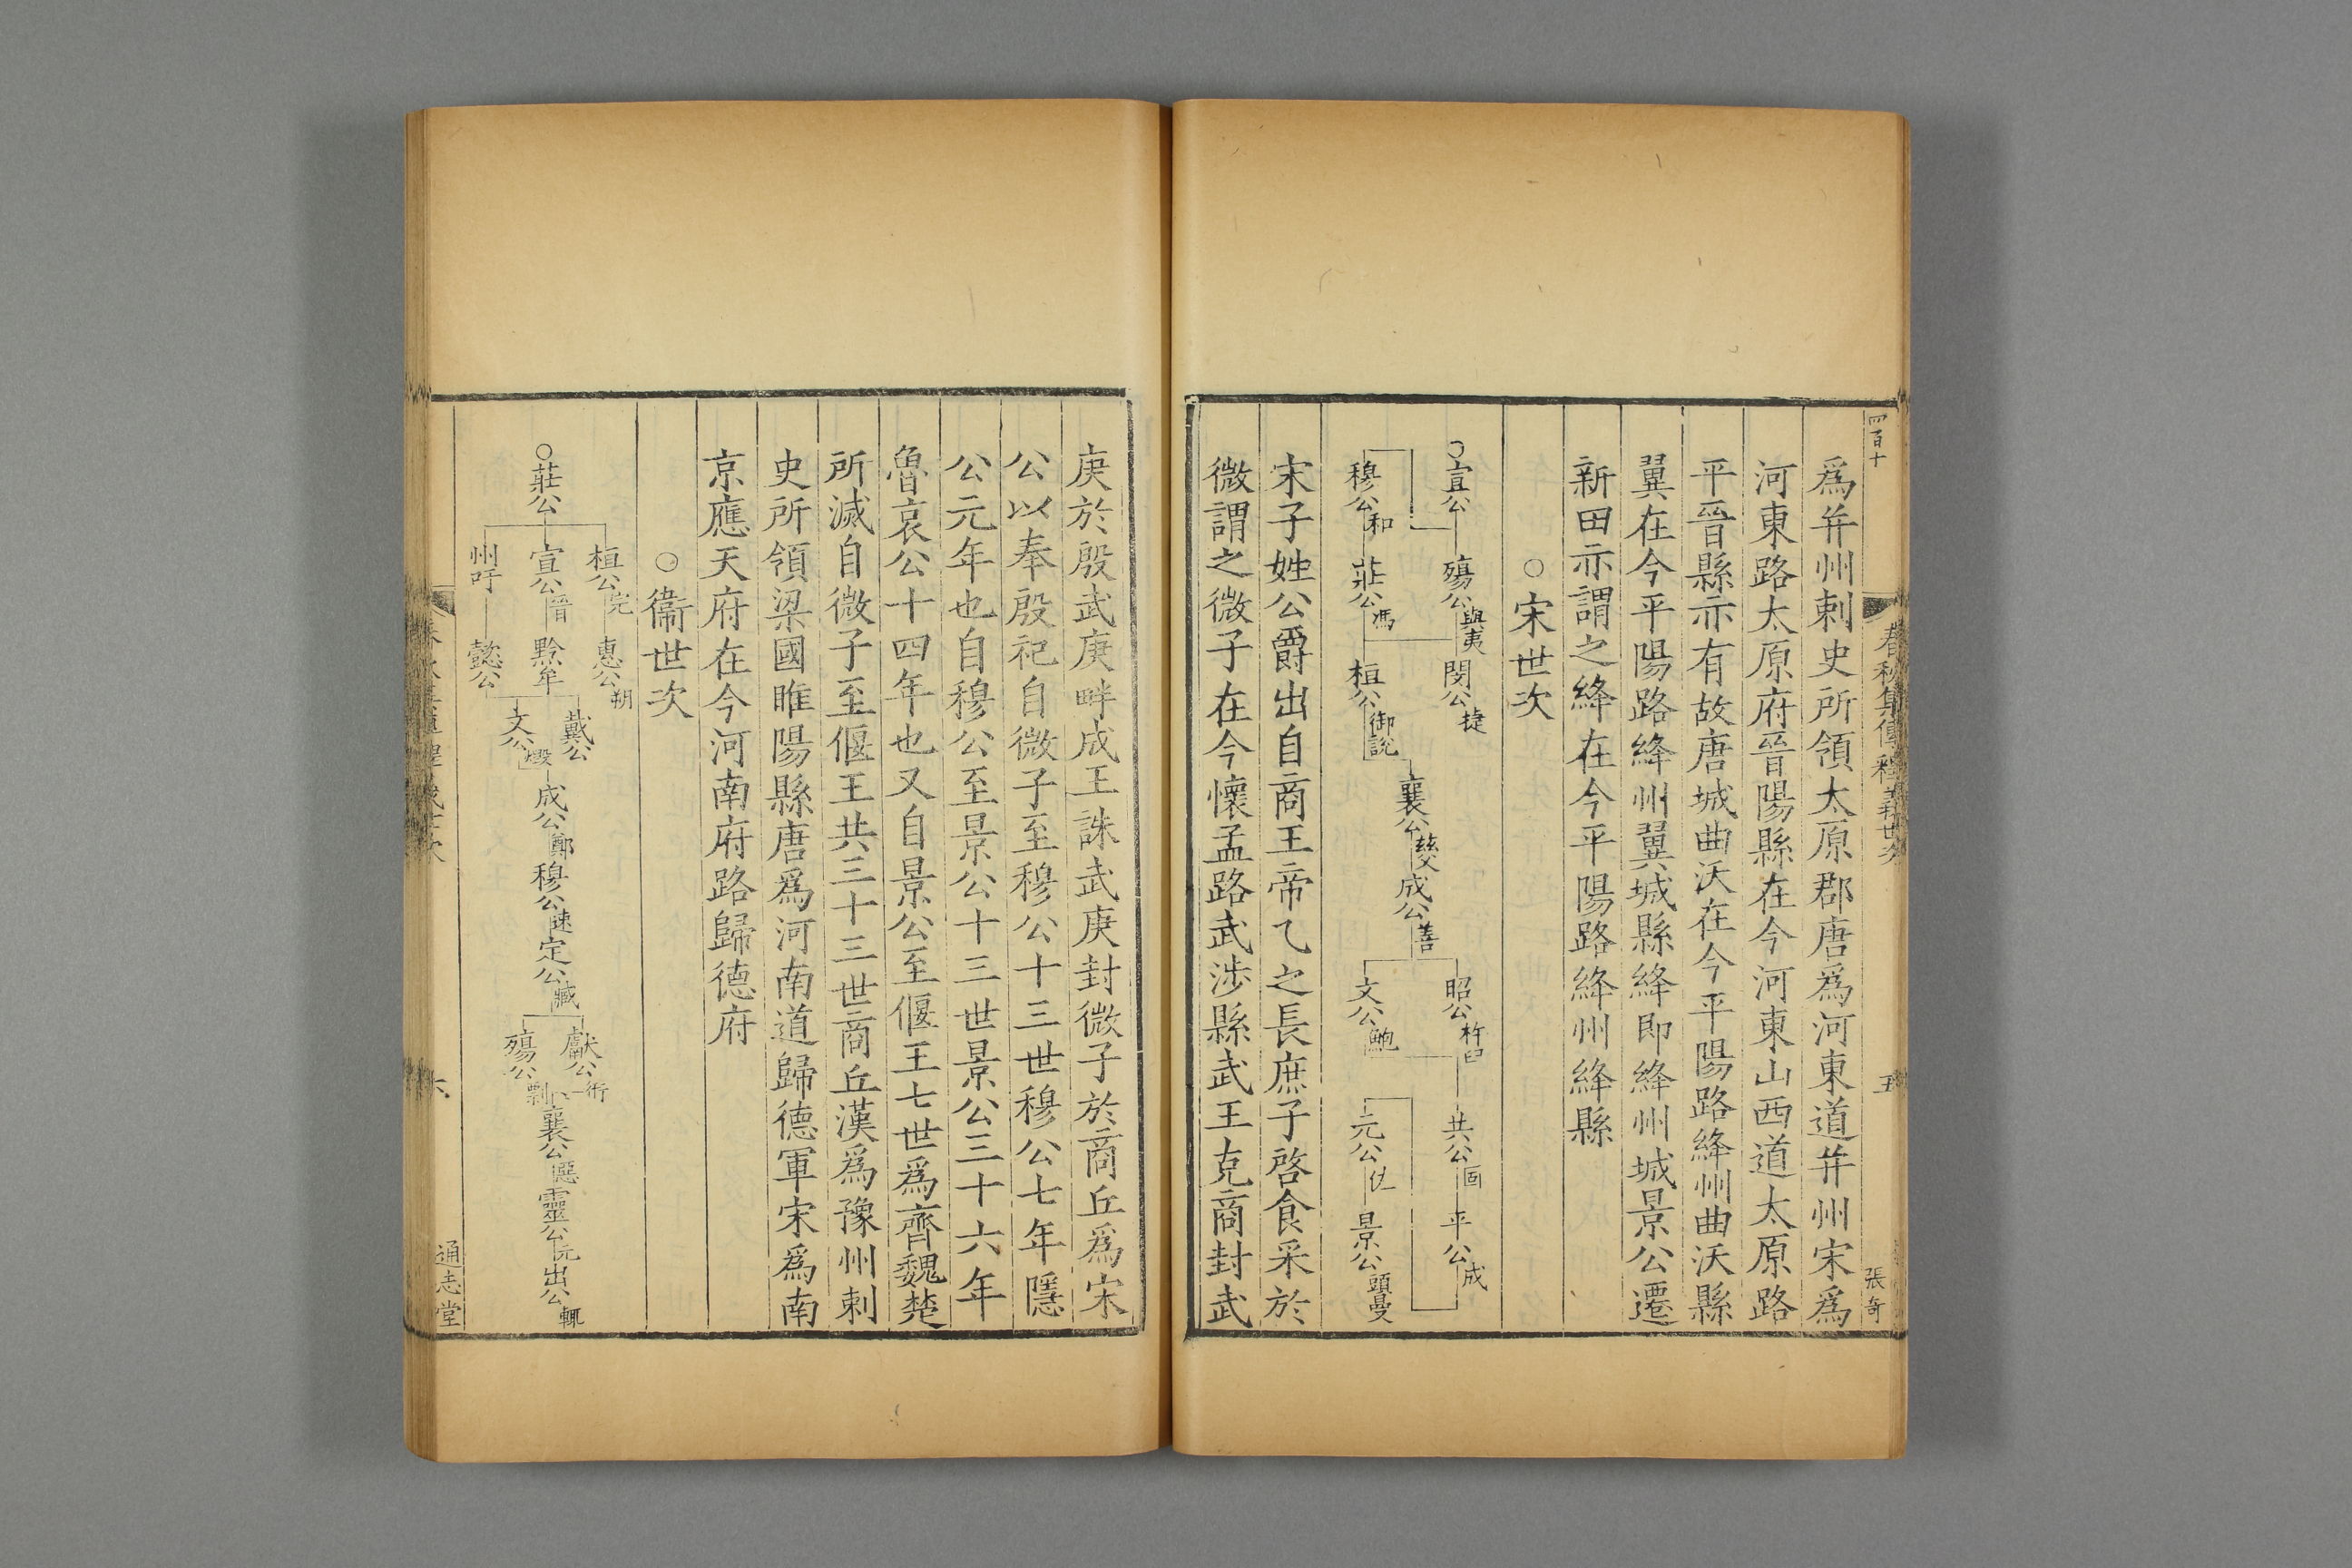 四百十
春秋集傳釋義世次
五
張奇
爲并州刺史所領太原郡唐爲河東道并州宋爲
河東路太原府晉陽縣在今河東山西道太原路
平晉縣亦有故唐城曲沃在今平陽路絳州曲沃縣
翼在今平陽路絳州翼城縣絳即絳州城景公遷
新田亦謂之絳在今平陽路絳州絳縣
○宋世次
○宣公 殤公與夷 閔公捷 昭公杵臼 共公固 平公成
襄公茲父 成公
穆公和 莊公馮 桓公御說 文公鮑 元公佐 景公頭曼
宋子姓公爵出自商王帝乙之長庶子啓食采於
微謂之微子在今懷孟路武涉縣武王克商封武
庚於殷武庚畔成王誅武庚封微子於商丘爲宋
公以奉殷祀自微子至穆公十三世穆公七年隱
公元年也自穆公至景公十三世景公三十六年
魯哀公十四年也又自景公至偃王七世爲齊魏楚
所滅自微子至偃王共三十三世商丘漢爲豫州刺
史所領梁國睢陽縣唐爲河南道歸德軍宋爲南
京應天府在今河南府路歸德府
○衞世次
桓公完 惠公朔
戴公 獻公衎
○莊公 宣公晉 黔牟 成公鄭 穆公速 定公臧 襄公惡 靈公元 出公輒
文公燬 殤公剽
州吁 懿公
六
通志堂